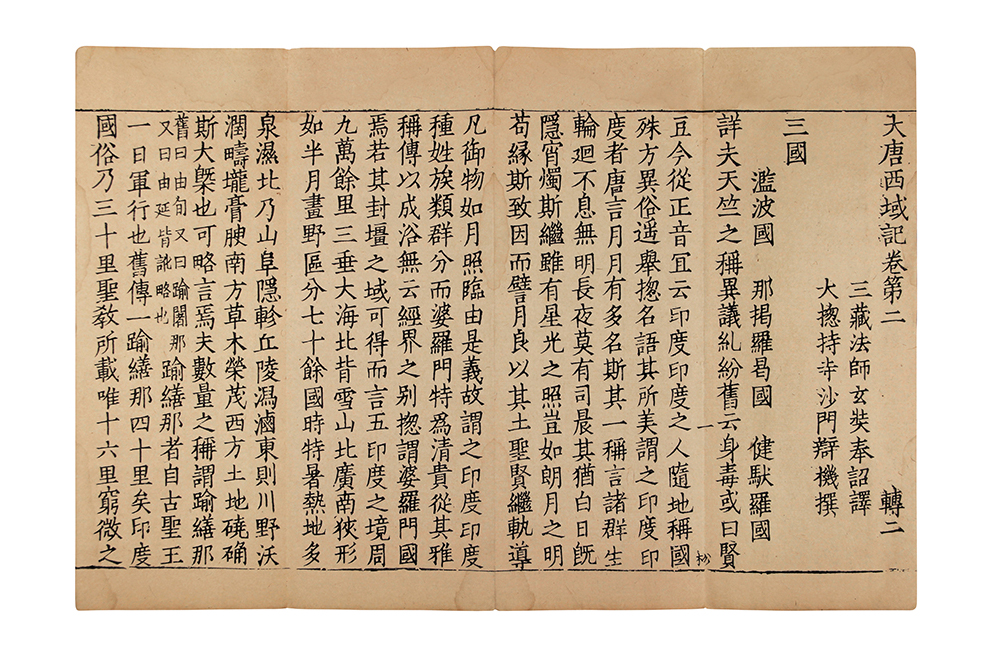 大唐西域記卷第二　轉二
三藏法師玄奘奉詔譯
大揔持寺沙門辯機撰
三國
濫波國　那揭羅曷國　健馱羅國
詳夫天竺之稱異議糺紛舊云身毒或曰賢
一
豆今從正音宜云印度印度之人隨地稱國
殊方異俗遥舉揔名語其所美謂之印度印
度者唐言月月有多名斯其一稱言諸群生
輪廻不息無明長夜莫有司晨其猶白日旣
隱宵燭斯繼雖有星光之照豈如朗月之明
苟緣斯致因而譬月良以其土聖賢繼軌導
凡御物如月照臨由是義故謂之印度印度
種姓族類群分而婆羅門特爲清貴從其雅
稱傳以成浴無云經界之别揔謂婆羅門國
焉若其封壃之域可得而言五印度之境周
九萬餘里三垂大海北背雪山北廣南狹形
如半月畫野區分七十餘國時特暑熱地多
泉濕北乃山阜隱軫丘陵潟滷東則川野沃
潤疇壠膏腴南方草木榮茂西方土地磽确
斯大槩也可略言焉夫數量之稱謂踰繕那
舊曰由旬又曰踰闍那
又曰由延皆訛略也
踰繕那者自古聖王
一日軍行也舊傳一踰繕那四十里矣印度
國俗乃三十里聖教所載唯十六里窮微之